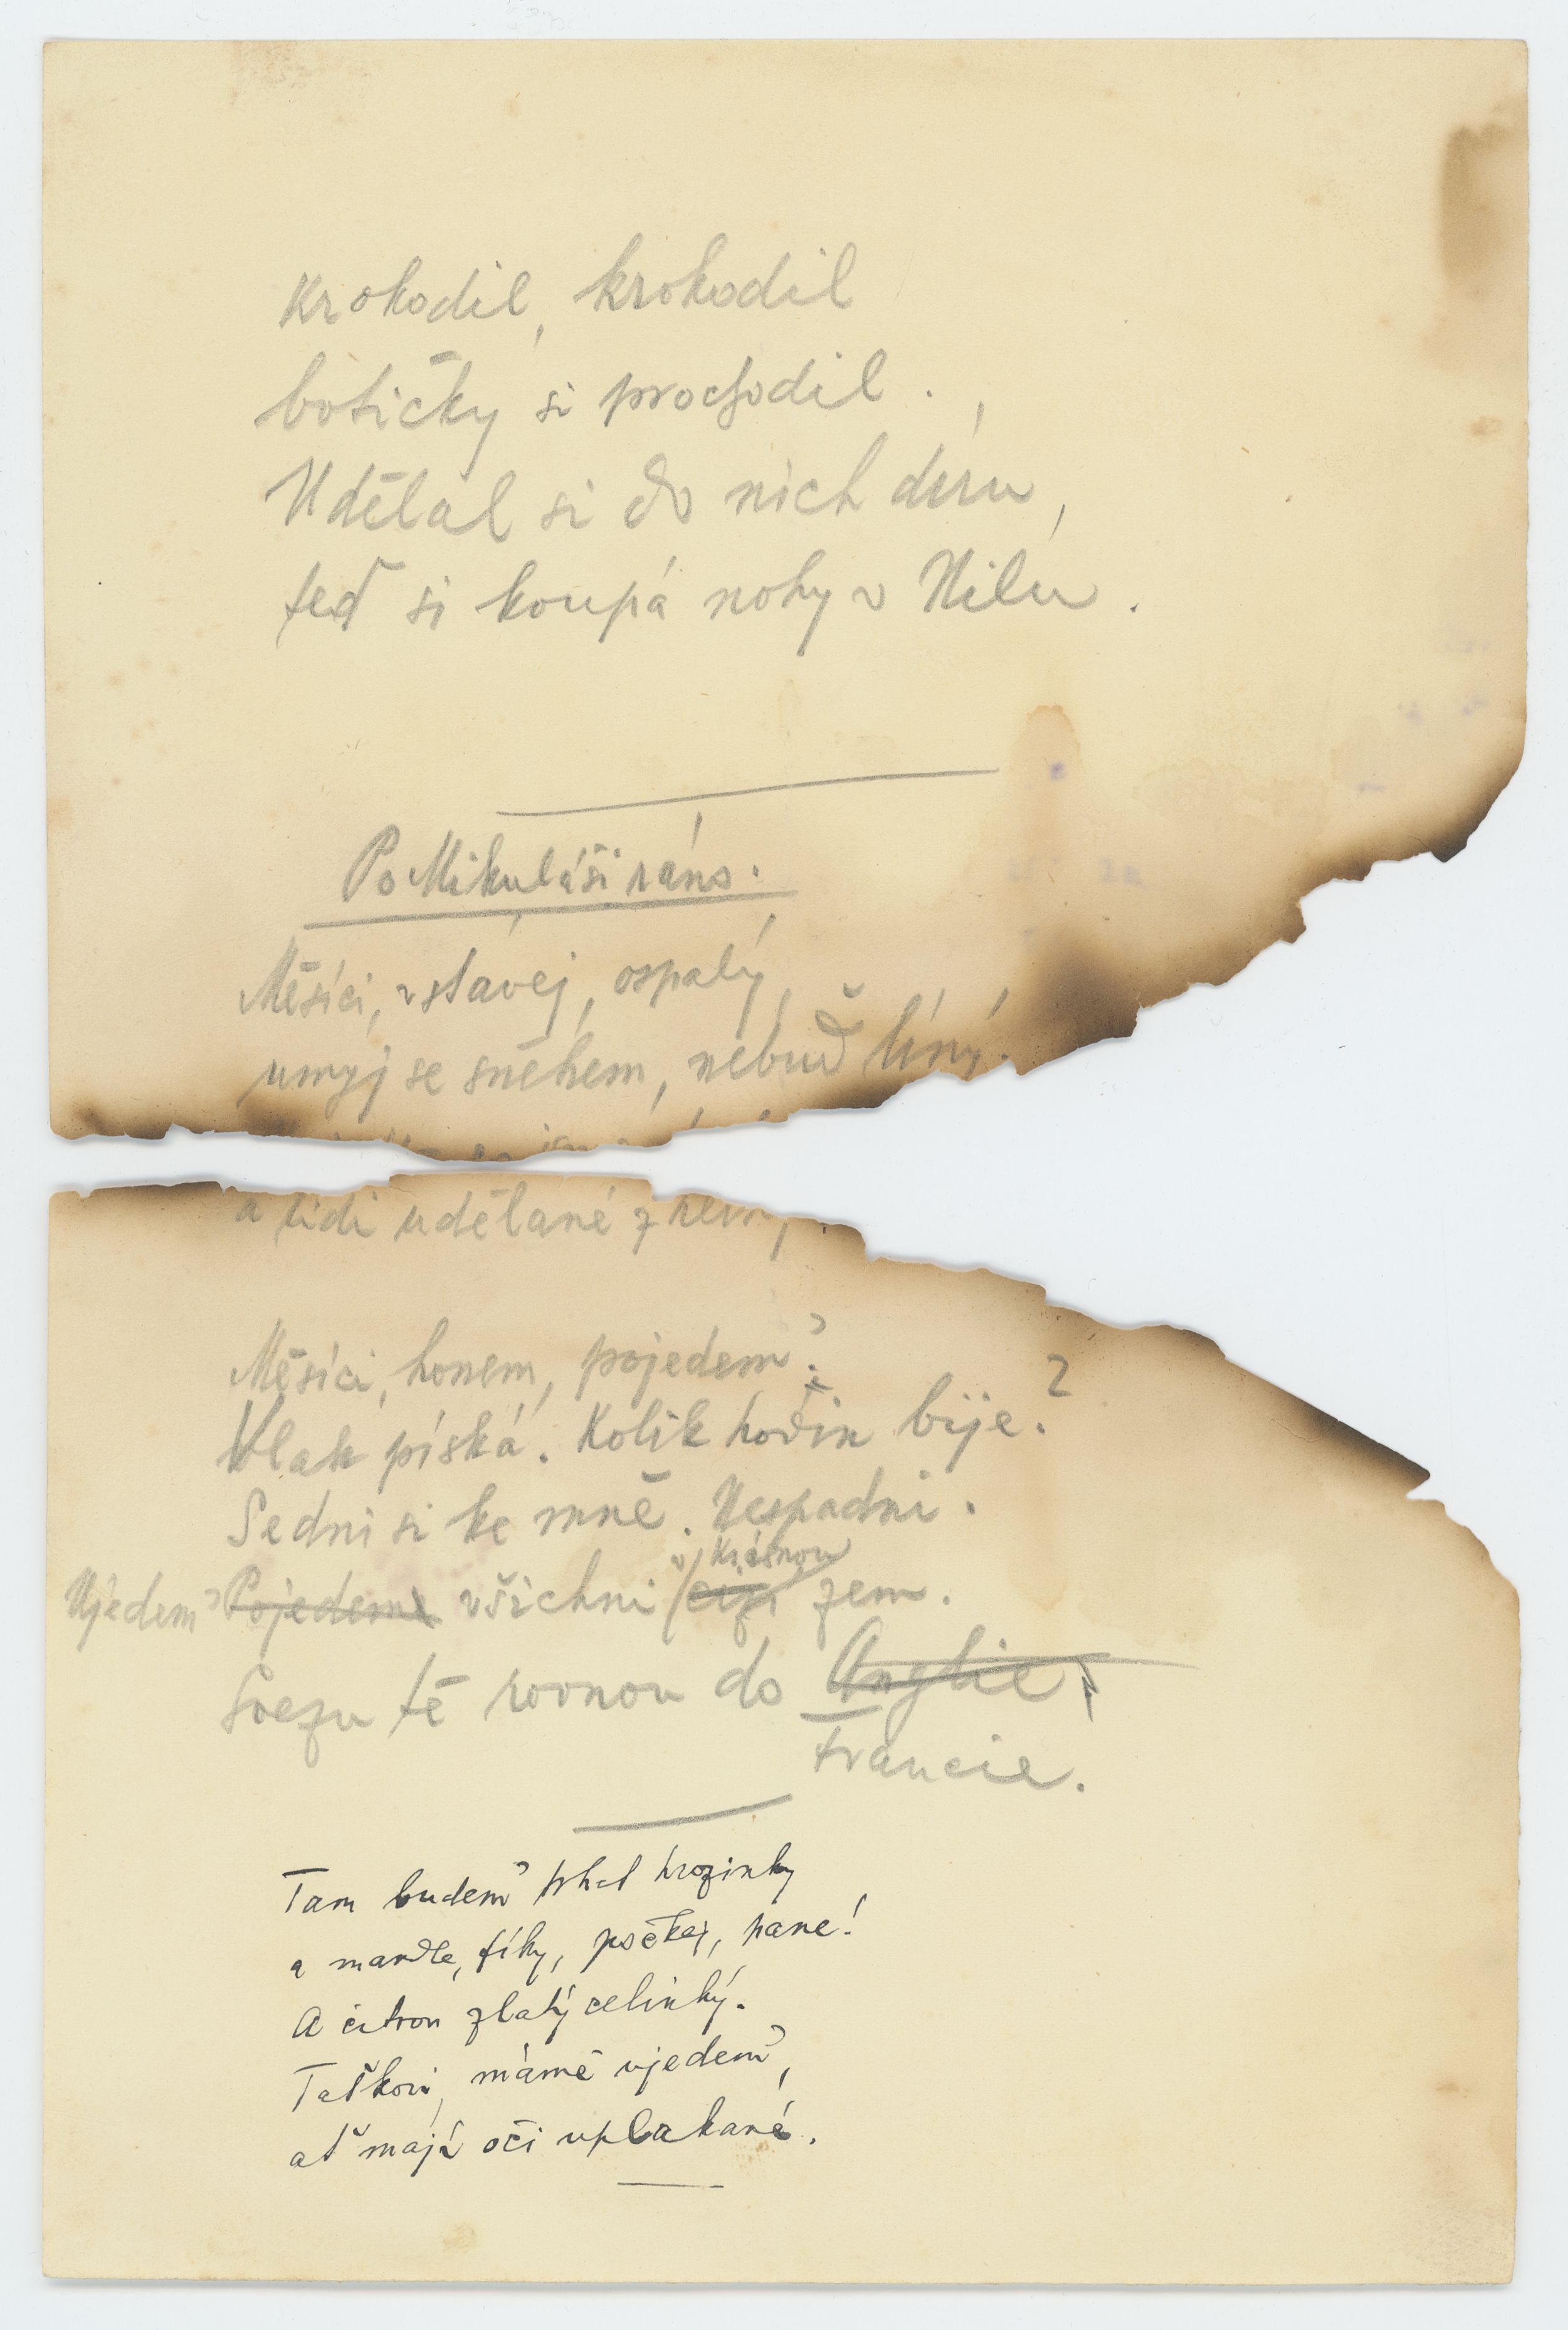 Krokodil, krokodil
botičky si prochodil.
Udělal si do nich díru,
teď si koupá nohy v Nilu.
Po Mikuláši ráno.
Měsíci, vstávej, ospalý,
umyj se sněhem, nebuď líný.
a lidi udělané z
Měsíci, honem, pojedem?
Vlak píská. Kolik hodin bije?
Sedni si ke mně. Nespadni.
v krásnou
Ujedem' Pojedeme všichni cizí zem.
Svezu tě rovnou do Anglie.
Francie.
Tam budem' trhat hrozinky
a mandle, fíky, počkej, pane!
A citron zlatý celinký.
Taťkovi, mámě ujedem',
ať mají oči uplakané.